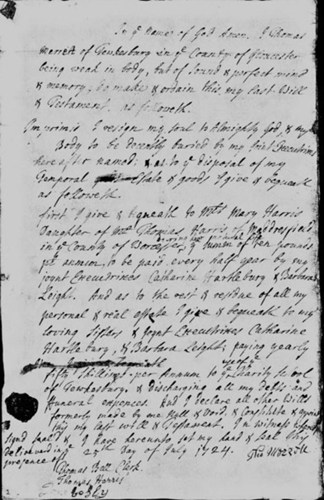 In ye Name of God Amen. I Thomas
of Tewkesbury in ye County of Gloucester
being weak in body, but of sound & perfect mind
& memory, do make & ordain this my last Will
& Testament. as followeth.
Imprimis I resign my soul to Almighty God, & my
Body to be decently buried by my joint Executrixes
hereafter named: & as to ye disposal of my
Temporal Estate & goods I give & bequeath
as followeth.
first I give & bequeath to Mrs Mary Harris
Daughter of Mr Thomas Harris of
in ye County of Worcester, ye summ of ten pounds
pr annum to be paid every half year by my
joynt Executrixes Catharine Hartlebury, & Barbara
Leight. And as to the rest & residue of all my
personal & real estate I give & bequeath to my
loving sisters & Joynt Executrixes Catharine
Hartlebury, & Barbara Leight, paying yearly
fifty shillings per annum to ye Charity School
of Tewkesbury, & discharging all my debts and
funeral expences. And I declare all other Wills
formerly made by me Null & Void, & Constitute &
this my last will & Testament. In witness whereof
I have hereunto set my hand & seal this
25th Day of July 1724.
Signd seal'd &
deliverd in ye
presence of
Thomas Ball Clerk
Thomas Harris